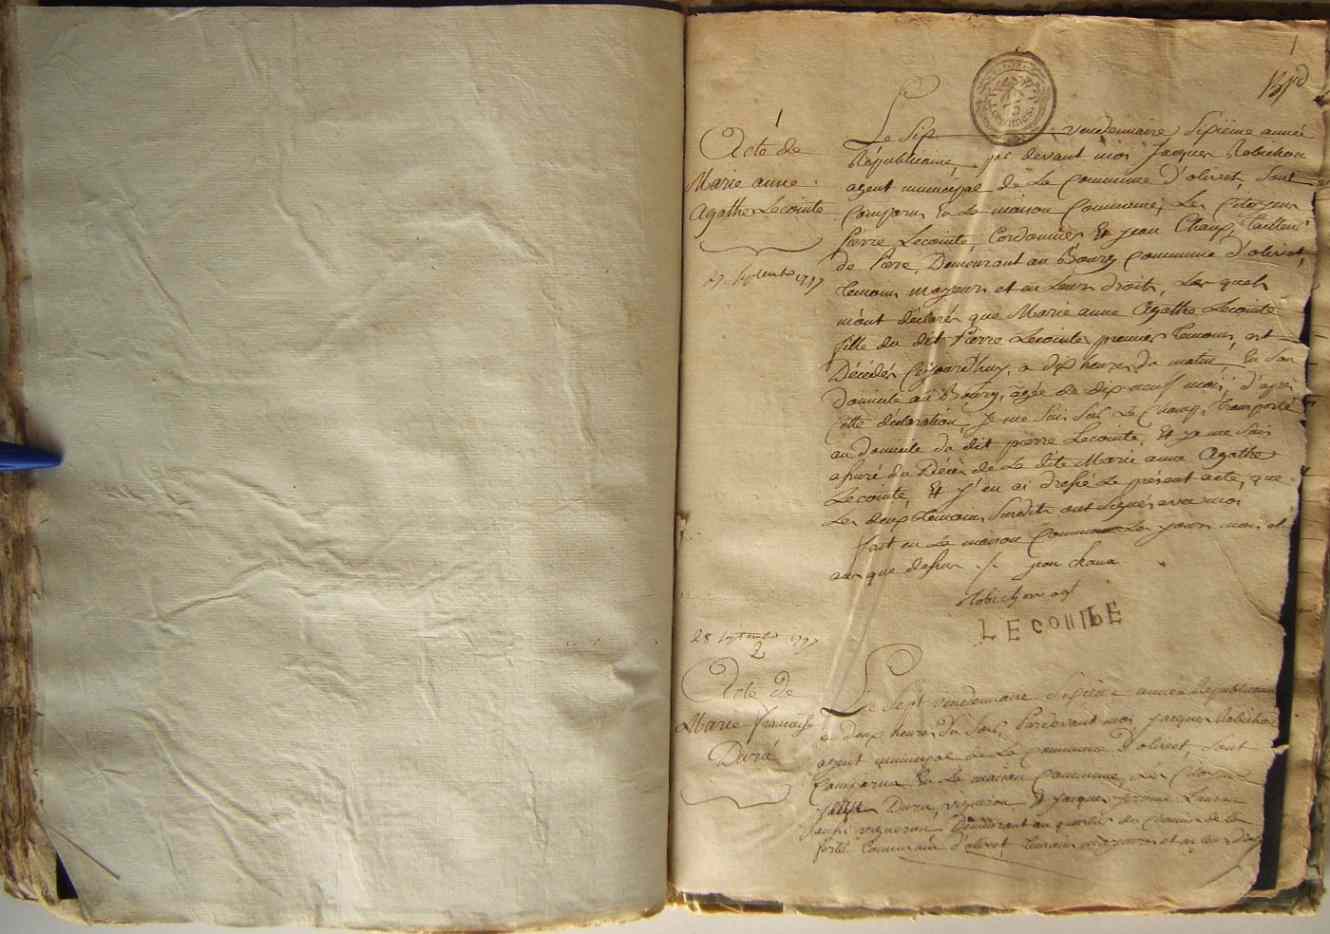 1
1
Acte de
Marie anne
Agathe Lecointe
27 septembre 1797
Le Six vendemiaire Sixième année
Républicaine, par devant moi Jacques Robichon
agent municipal de La Commune d'olivet, Sont
Comparus En La maison Commune, Les Citoyens
Pierre Lecointe Cordonnier Et jean Chaux, tailleur
de Pierre, Demeurant au Bourg Commune d'olivet,
temoins majeurs et en Leurs droits, Les quels
m'ont déclarés que Marie anne Agathe Lecointe
fille du dit Pierre Lecointe premier temoin, est
Décédée Cejourd'huy, a dix heures du matin En son
domicile au Bourg, agée de dix neuf mois, d'après
Cette declaration, Je me Suis Sur Le Champ, transporté
au domicile du dit pierre Lecointe, Et je me Suis
assuré du Décès de La dite Marie anne Agathe
Lecointe, Et j'en ai dressé Le présent acte, que
Les deux temoins Susdits ont signés avec moi
fait en La maison Commune Les jours mois et
an que dessus ./. jean chaux
Robichon agt
LECOINTE
28 septembre 1797
2
Acte de
Marie françoise
Duré
Le Sept vendemiaire Sixième année Républicaine
a deux heures du Soir, Pardevant moi Jacques Robichon
agent municipal de La Commune d'olivet, Sont
Comparus En La maison Commune, Les Citoyens
Duru, vigneron Et Jacques Jerome
vigneron Demeurant au quartier des Chemins de la
ferté Commune d'olivet, temoins majeurs et en leurs droits